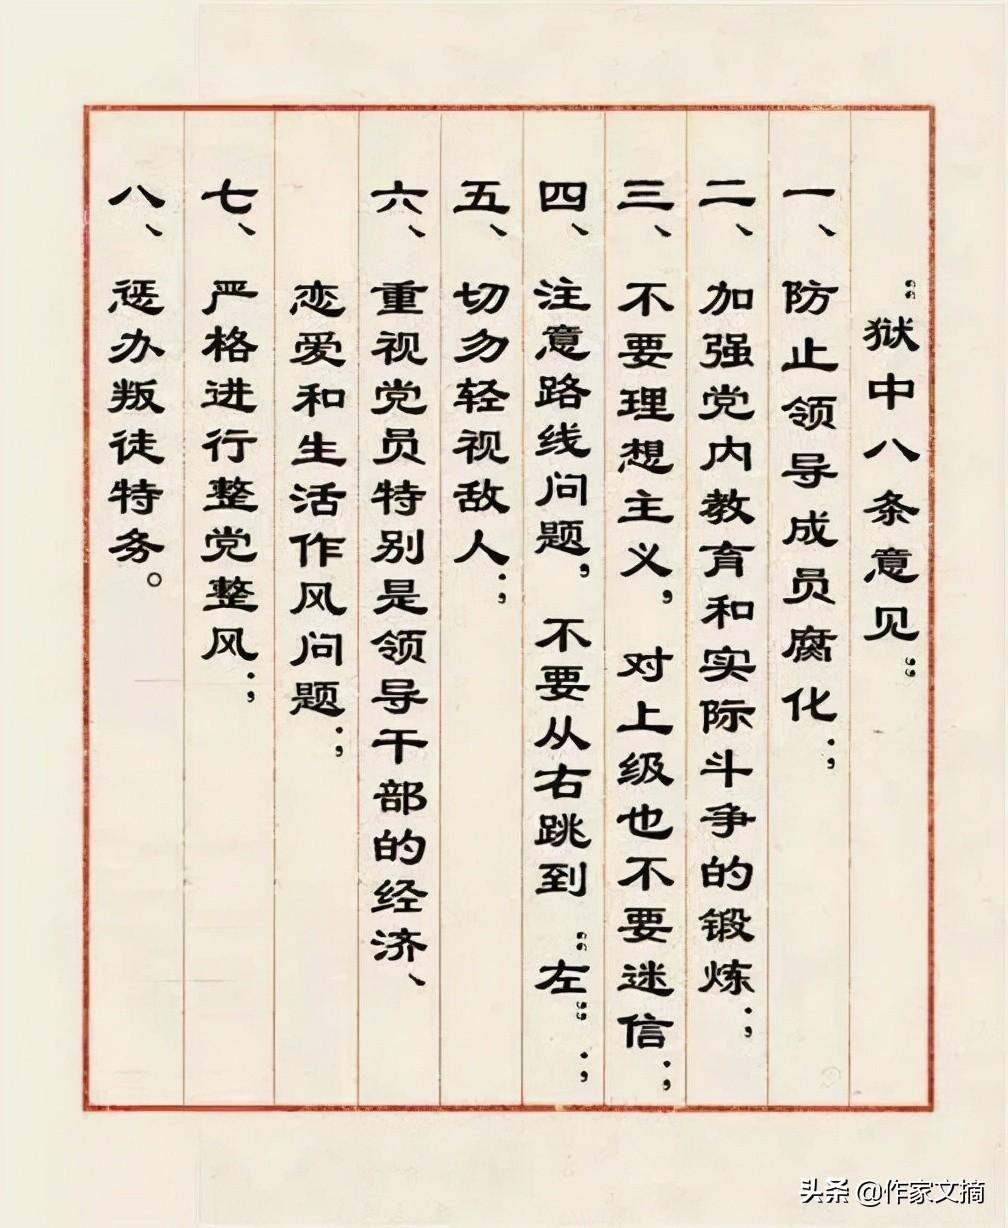 “狱中八条意见”
一、防止领导成员腐化；
二、加强党内教育和实际斗争的锻炼；
三、不要理想主义，对上级也不要迷信；
四、注意路线问题，不要从右跳到“左”；
五、切勿轻视敌人；
六、重视党员特别是领导干部的经济、
恋爱和生活作风问题；
七、严格进行整党整风；
八、惩办叛徒特务。
头条 @作家文摘